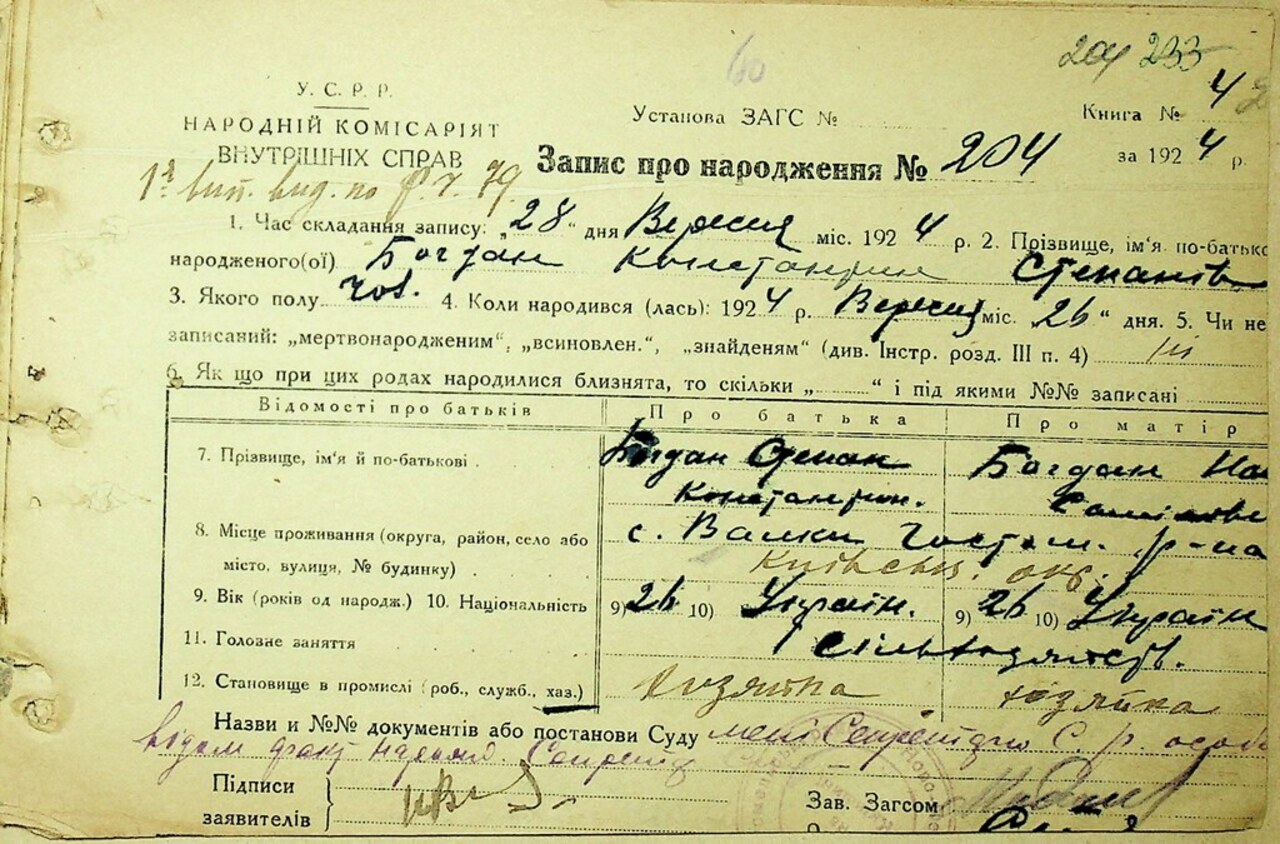 204 233
60
У. С. Р. Р.
НАРОДНІЙ КОМІСАРІЯТ
ВНУТРІШНІХ СПРАВ
Установа ЗАГС №
Книга № 4
Запис про народження № 204
за 1924 р.
1. Час складання запису: „28“ дня Вересня міс. 1924 р. 2. Прізвище, ім'я по-батько
народженого(ої) Богдан Константин Степанов
3. Якого полу чол. 4. Коли народився (лась): 1924 р. Вересня міс. „26“ дня. 5. Чи не
записаний: „мертвонародженим“, „всиновлен.“, „знайденям“ (див. Інстр. розд. III п. 4) ні
6. Як що при цих родах народилися близнята, то скільки „ “ і під якими №№ записані
Відомості про батьків Про батька Про матір
7. Прізвище, ім'я й по-батькові Богдан Степан Богдан
Константин.
8. Місце проживання (округа, район, село або с. Валки Гостом. р-на
місто, вулиця, № будинку) Київськ. окр.
9. Вік (років од народж.) 10. Національність 9) 26 10) Україн. 9) 26 10) Україн
11. Головне заняття сільхозяйств.
12. Становище в промислі (роб., служб., хаз.) хозяйка хозяйка
Назви и №№ документів або постанови Суду мені С. р. особ
Підписи
заявителів
Зав. Загсом